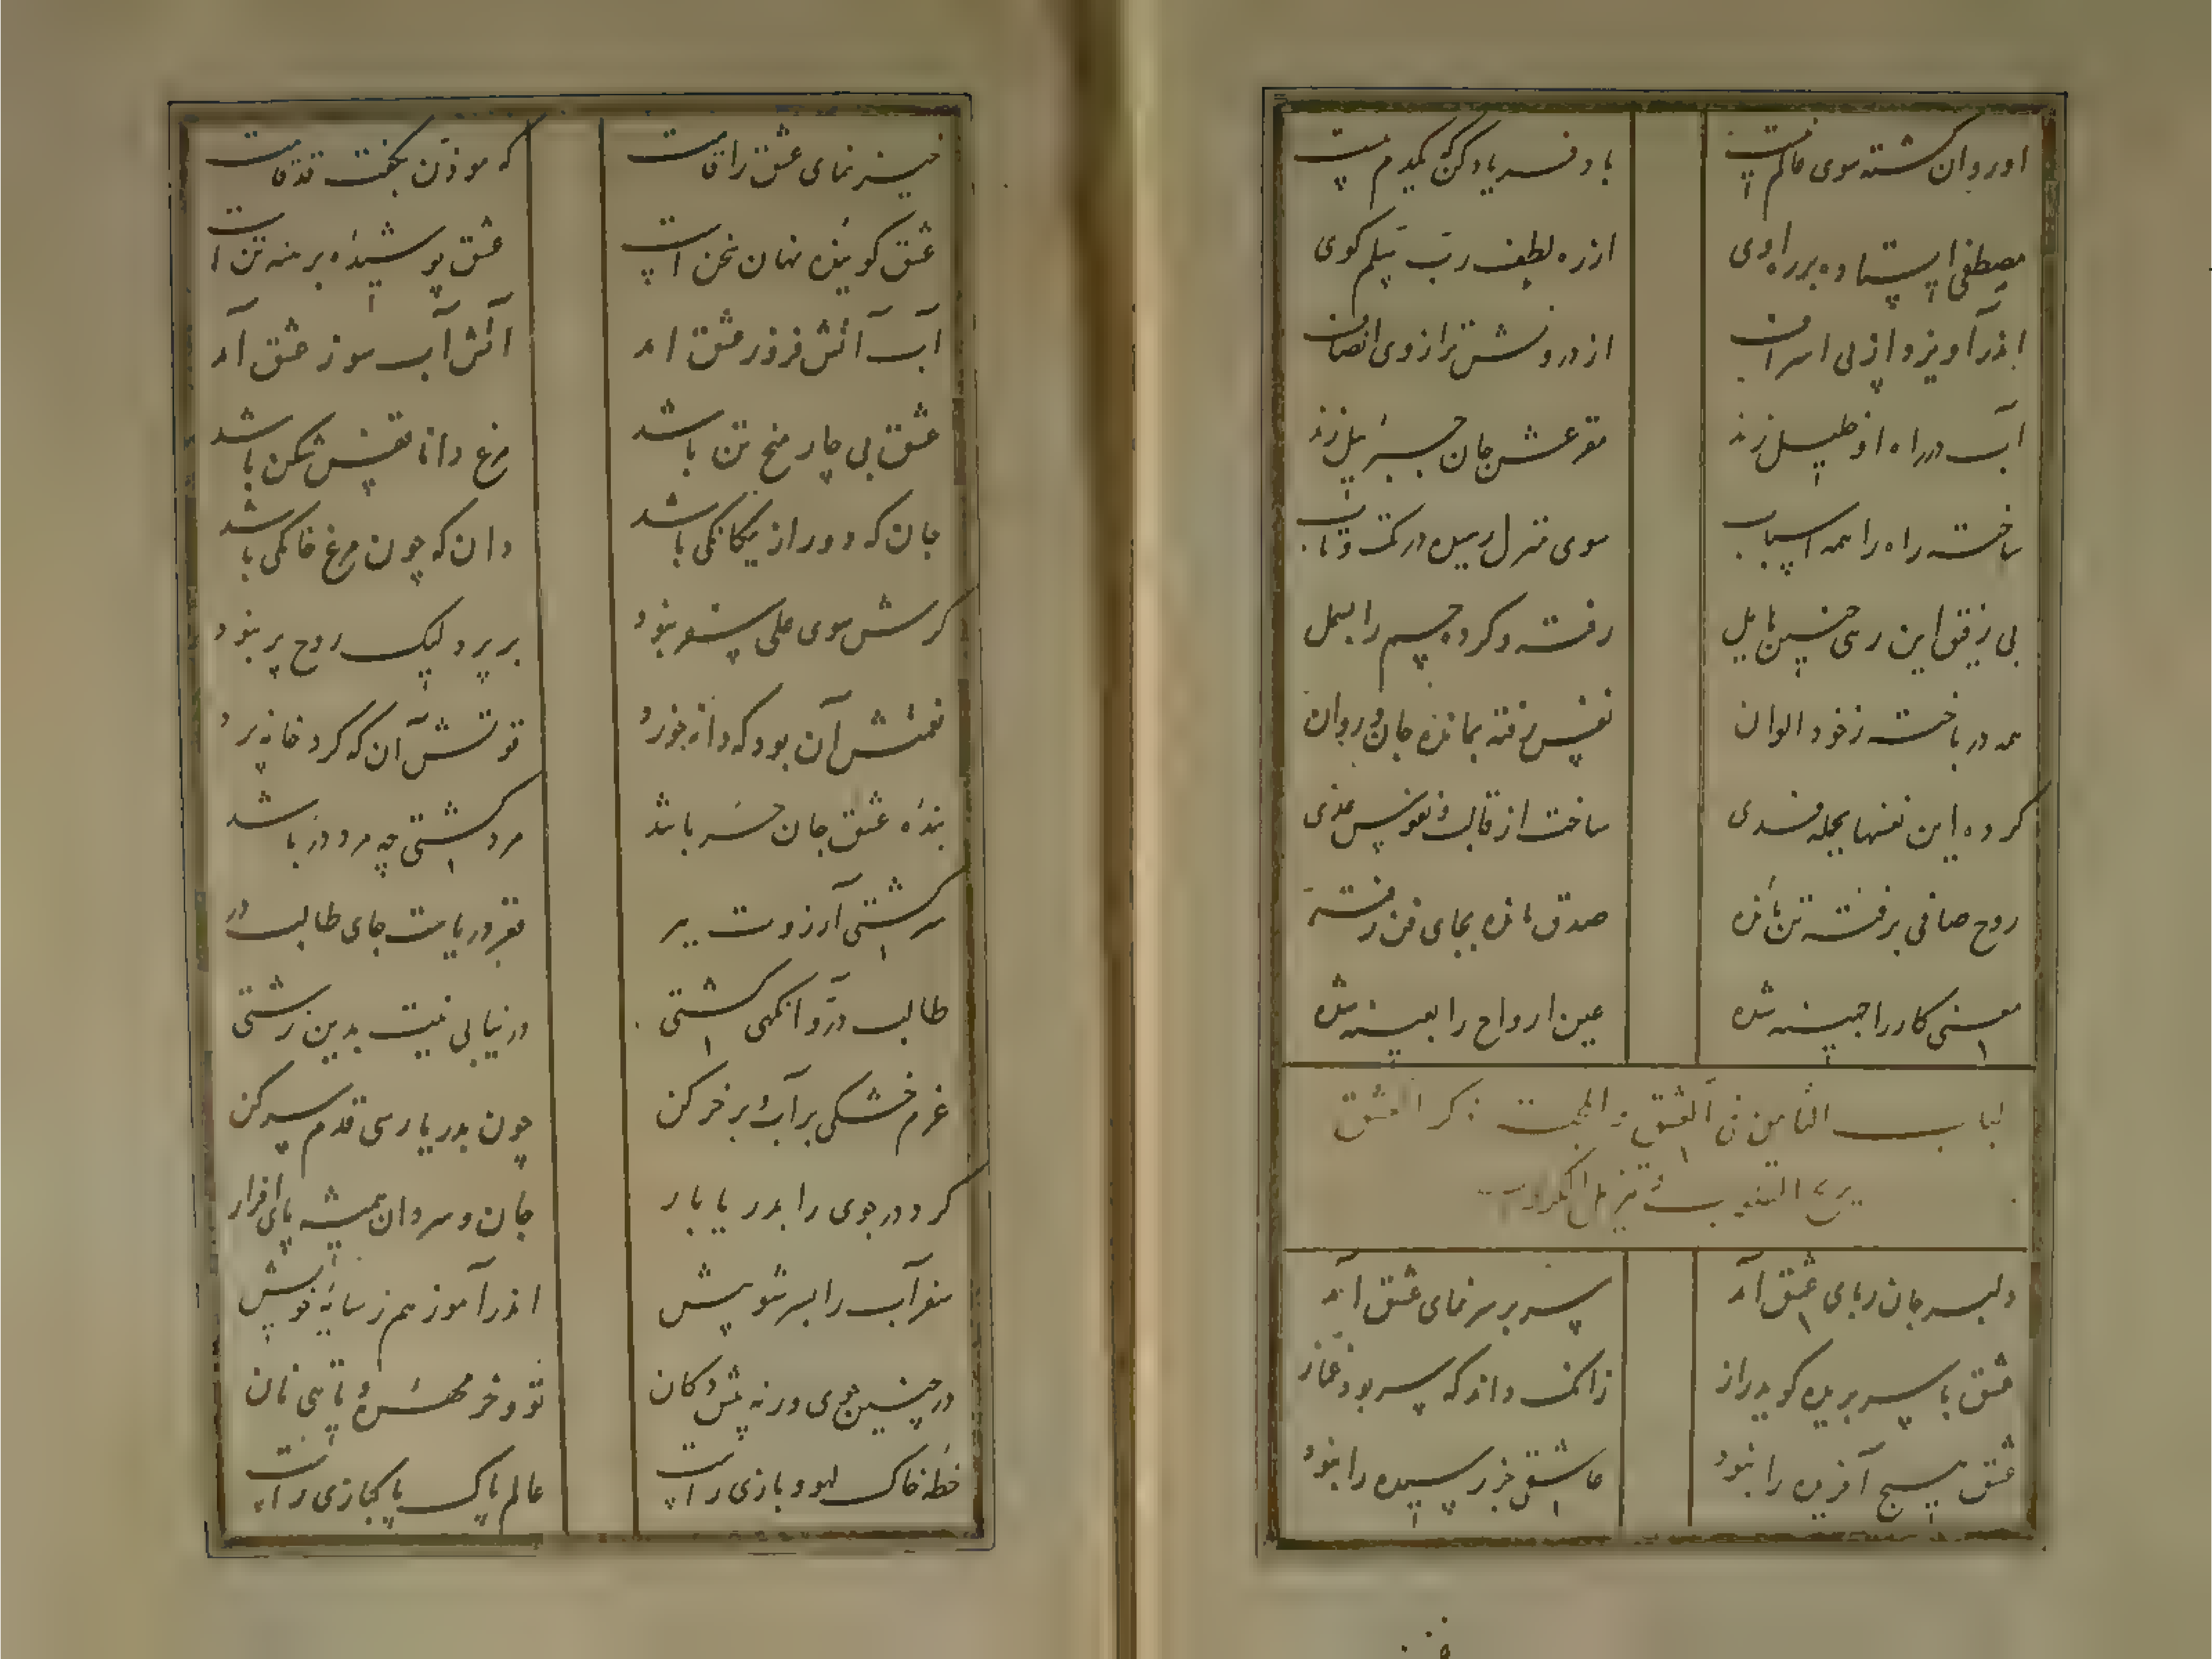 او روان گشته سوی خاکم پست با د فریاد کن یکدم پست
مصطفی ایستاده بر راوی از ره لطف رب سلم گوی
اندر آویزد از پی اسراف از درونش ترازوی انصاف
آب در راه او خلیل زند مقرعش جان جبرئیل زند
ساخته راه را همه اسباب سوی منزل رسیده در تک و تاب
بی رفیق این رهی چنین هایل رفته و کرده جسم را بسمل
همه در باخته ز خود الوان نفس رفته بمانده جان و روان
کرده این نفسها بجمله فدی ساخت از قالب و نفوس غذی
روح صافی برفته تن مانده صدق مانده بجای فن رفته
معنی کار را جنینه شده عین ارواح را بعینه شده
لباب الثامن فی العشق و المحبت ذکر العشق
یریح القلوب و یزیل الکروب
دلبر جان ربای عشق آمد سر بر سر نمای عشق آمد
عشق با سر بریده گوید راز زانک داند که سر بود غماز
عشق هیچ آفریده را نبود عاشقی جز رسیده را نبود
خیز بنمای عشق را قامت که موذن بگفت قد قامت
عشق گوینده نهان سخن است عشق پوشیده برهنه تن است
آب آتش فروز عشق آمد آتش آب سوز عشق آمد
عشق بی چار میخ تن باشد مرغ دانا قفس شکن باشد
جان که دور از یگانگی باشد دان که چون مرغ خانگی باشد
کرش سوی علی سفر نبود بر پرد لیک روح پر نبود
همتش آن بود که دانه خورد قوتش آن که گرد خانه پرد
بنده عشق جان حر باشد مرد کشتی چه مرد در باشد
سر کشتی آرزوت ببر قعر دریاست جای طالب در
طالب در و آنگهی کشتی در نیابی نیت بدین زشتی
عزم خشکی بر آب و بر خر کن چون بدریا رسی قدم سر کن
گرد در جوی را بدریا بار جان و سر دان همیشه پای افزار
سفر آب را بسر شو پیش اندر آموز هم ز سایه خویش
در چنین جوی ورنه پیش دکان تو و خر مهره و تاهی نان
خطه خاک لهو و بازی راست عالم پاک پاکبازی راست